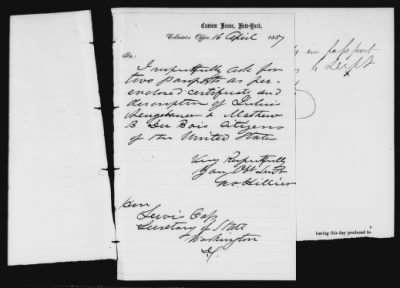 Custom House, New-York,
Collector's Office, 16 April 1857
Sir:
I respectfully ask for
two passports as per
enclosed certificates and
description of Julius
& Mathew
B Du Bois Citizens
of the United States
Very Respectfully
Your Obt Servt
Hon
Lewis Cass
Secretary of State
Washington
in passport
Dept
having this day produced to